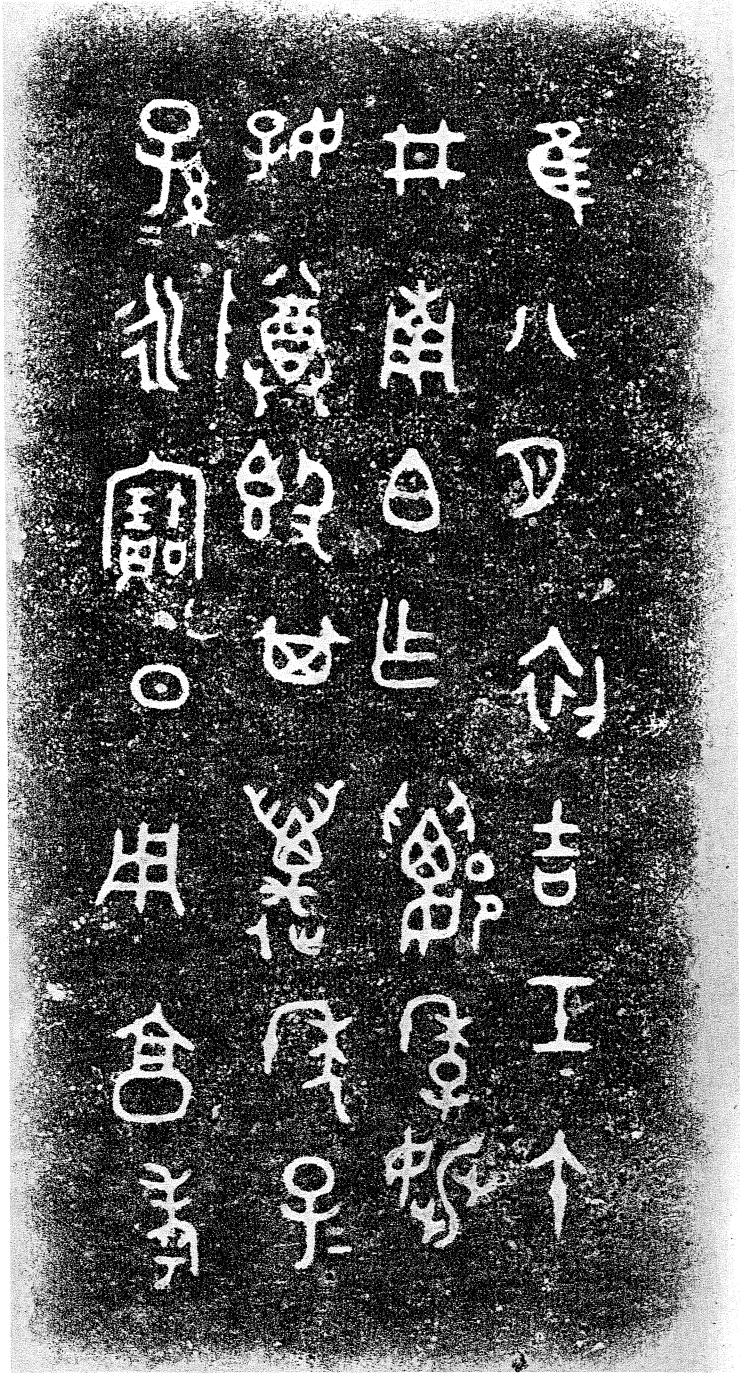 隹八月初吉壬午
井南白乍季姚
好尊𣪘其萬年子=
孫=永寶日用亯孝